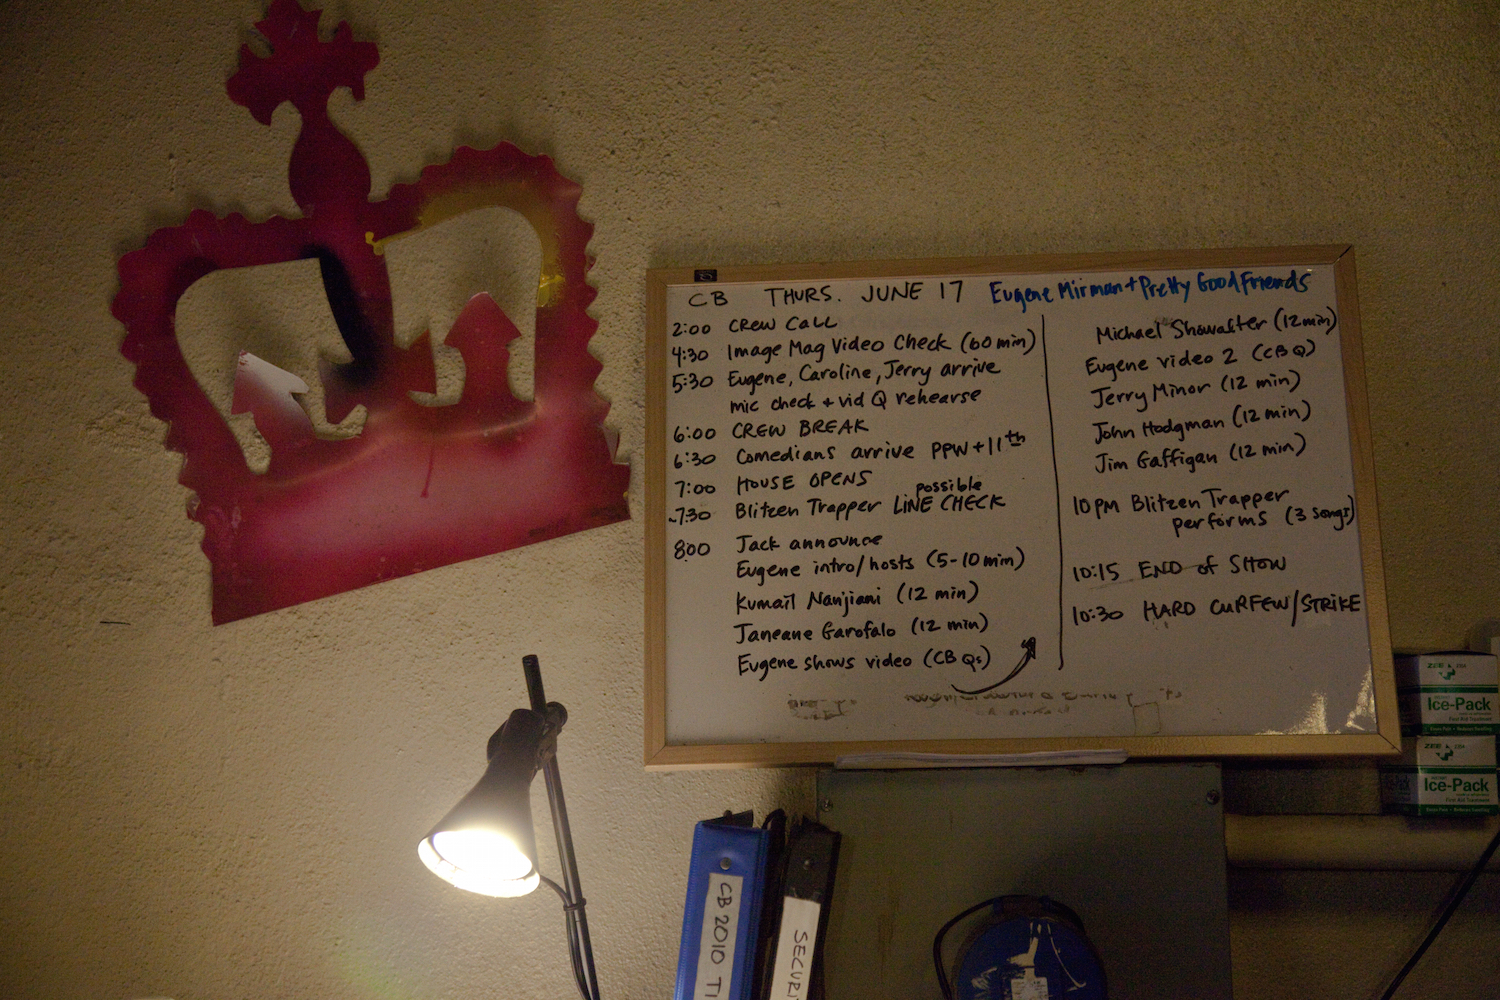 CB THURS. JUNE 17 Eugene Mirman + Pretty Good Friends
2:00 CREW CALL
4:30 Image Mag Video Check (60 min)
5:30 Eugene, Caroline, Jerry arrive
mic check + vid Q rehearse
6:00 CREW BREAK
6:30 Comedians arrive PPW + 11th
7:00 HOUSE OPENS
possible
~7:30 Blitzen Trapper LINE CHECK
8:00 Jack announce
Eugene intro/hosts (5-10 min)
Kumail Nanjiani (12 min)
Janeane Garofalo (12 min)
Eugene shows video (CB Qs)
Michael Showalter (12 min)
Eugene video 2 (CB Q)
Jerry Minor (12 min)
John Hodgman (12 min)
Jim Gaffigan (12 min)
10 PM Blitzen Trapper
performs (3 songs)
10:15 END of SHOW
10:30 HARD CURFEW/STRIKE
ZEE
Ice-Pack
First Aid Treatment
ZEE
Ice-Pack
First Aid Treatment
CB 2010 TI
SECURI